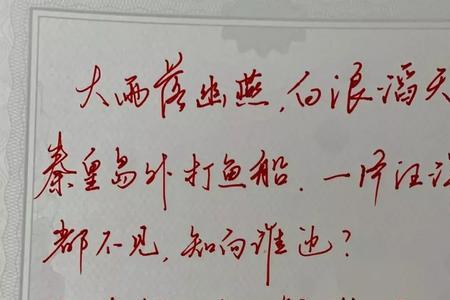 大雨落幽燕,白浪滔天
秦皇岛外打鱼船.一片汪
都不见,知向谁边?